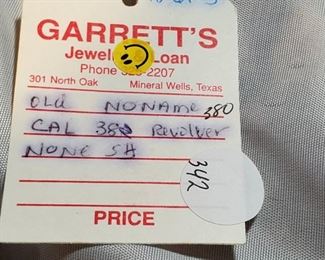 GARRETT'S
Jewel Loan
Phone 325-2207
301 North Oak Mineral Wells, Texas
Old NO NAME 380
CAL 38 Revolver
NONE SH
342
PRICE